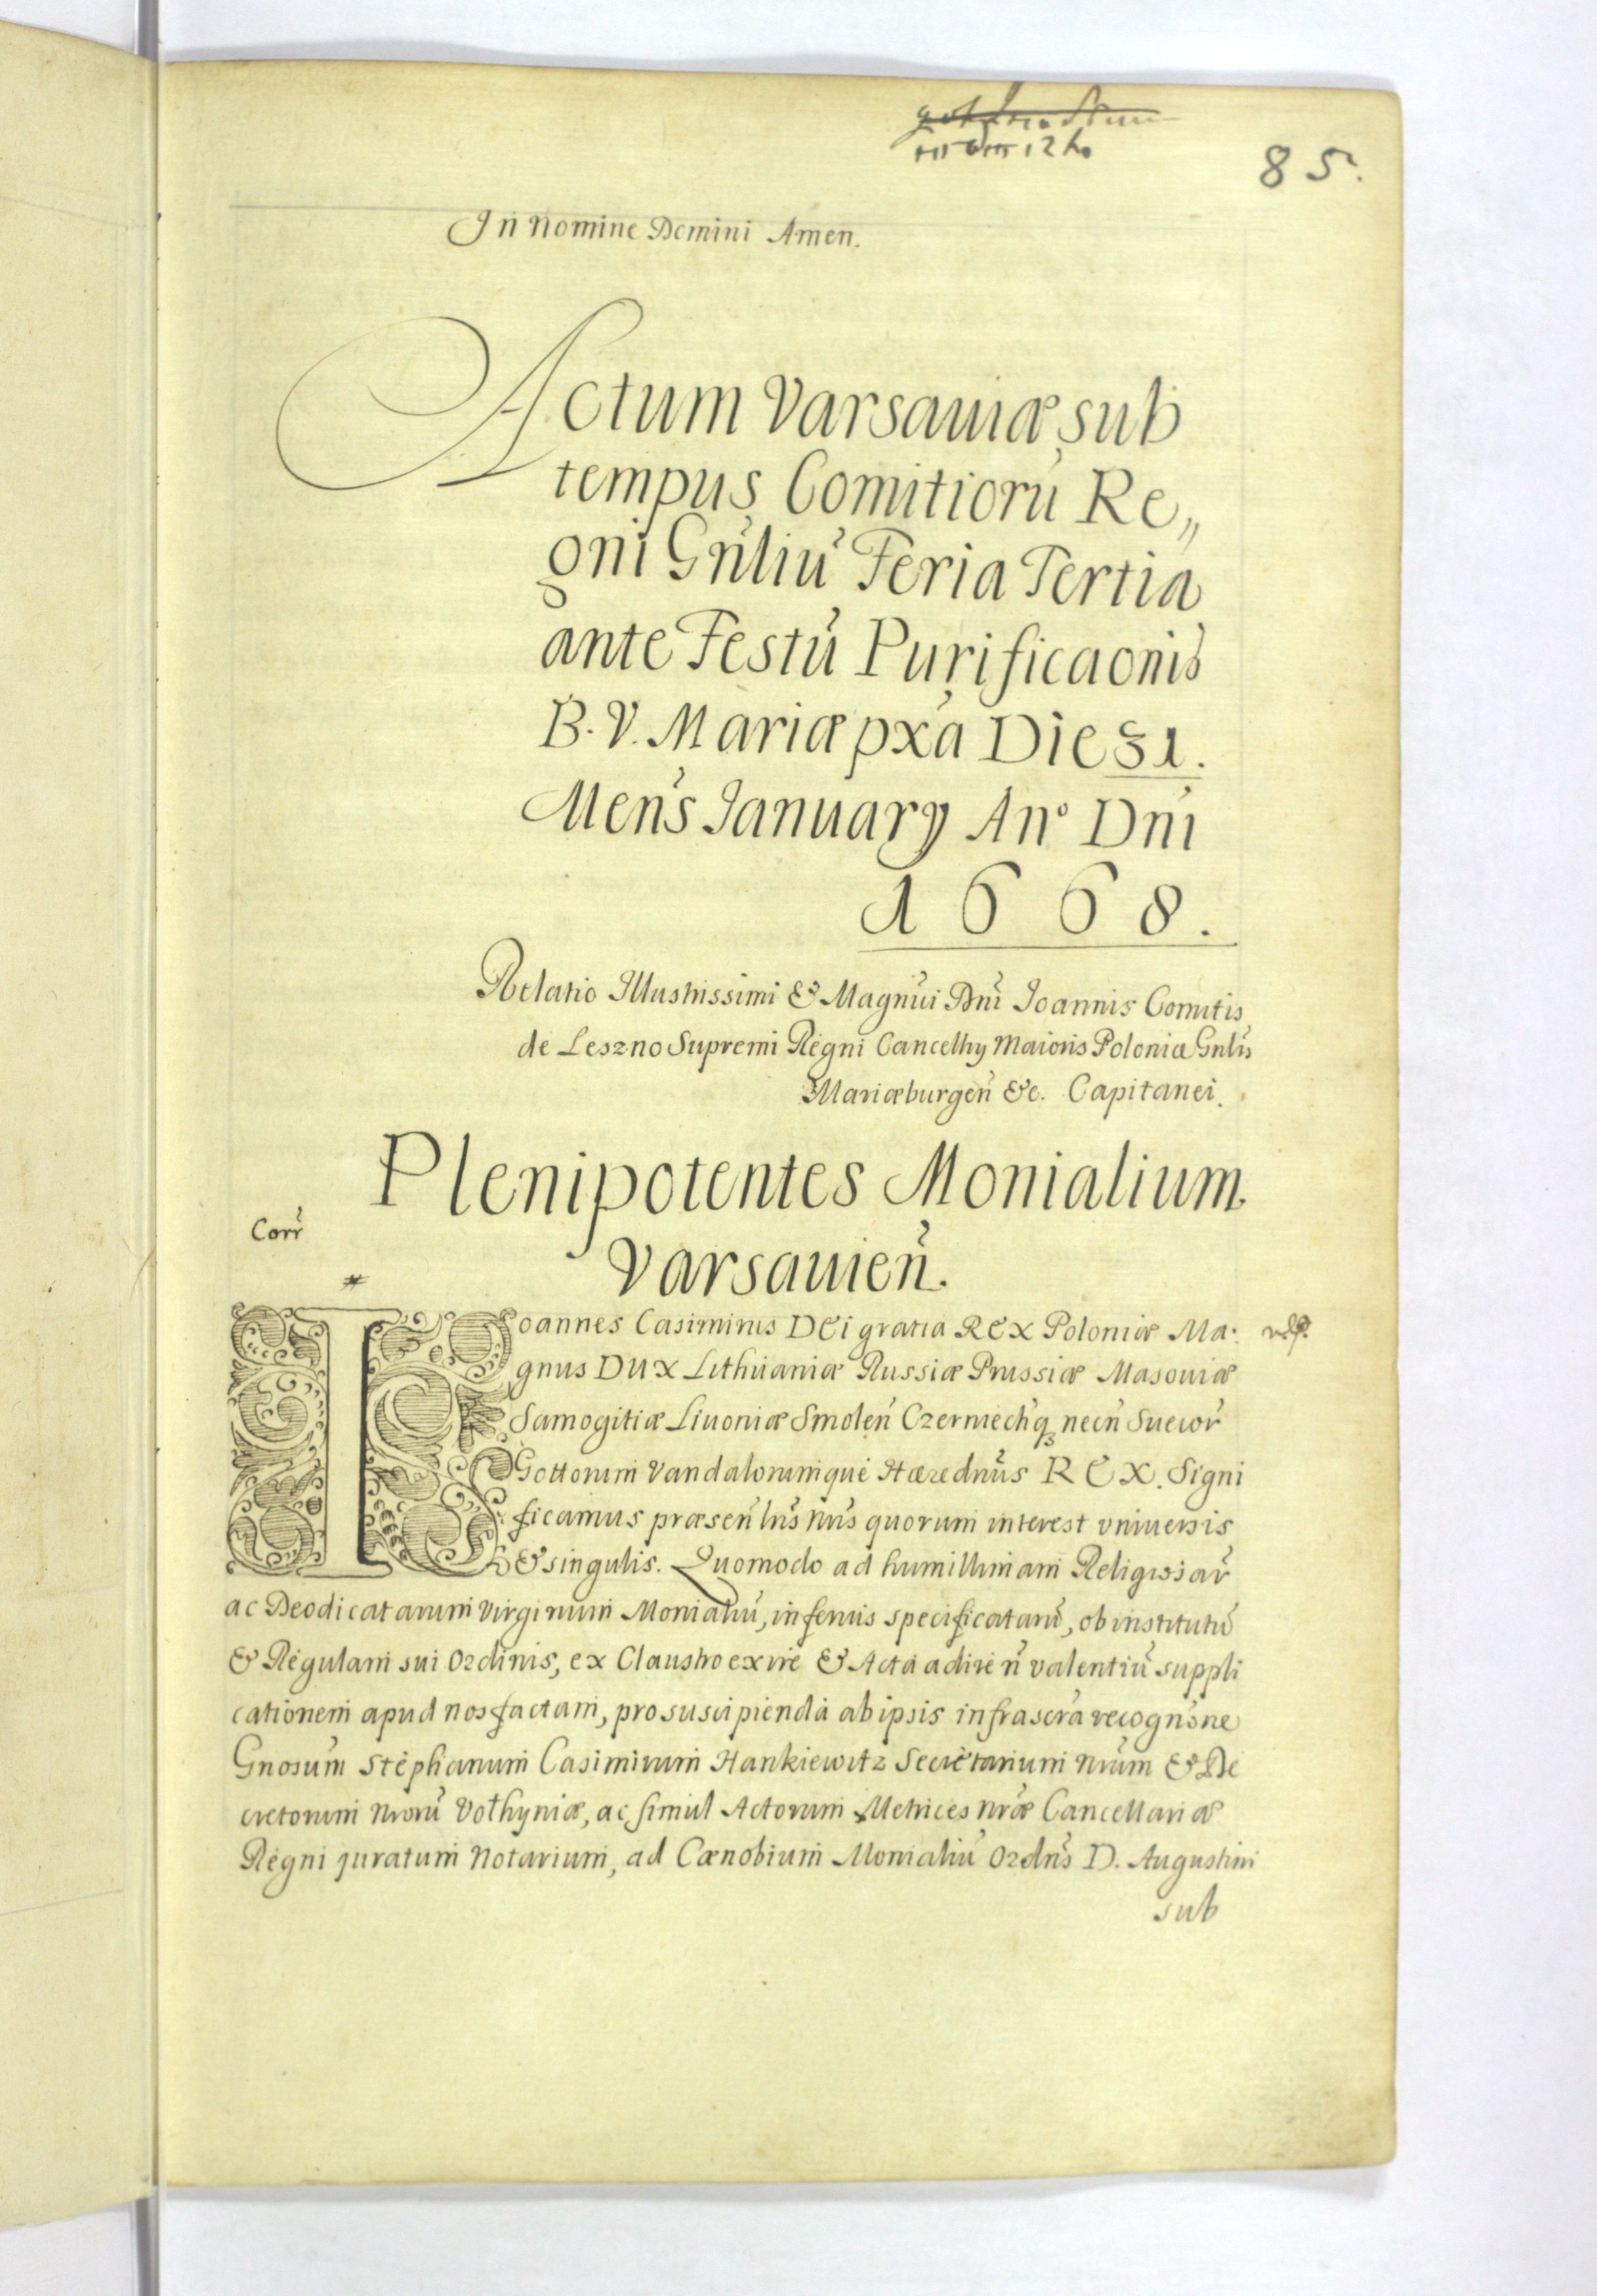 85.
In Nomine Domini Amen.
Actum Varsaviæ sub
tempus Comitiorũ Re„
gni Gñliũ Feria Tertia
ante Festũ Purificaonis
B. V. Mariæ pxã Die 31.
Meñs January Anº Dñi
1668.
Relatio Illustrissimi & Magñui Dñi Joannis Comitis
de Leszno Supremi Regni Cancellry Maioris Poloniæ Gñlis
Mariæburgeñ &c. Capitanei.
Plenipotentes Monialium
Varsauieñ.
Corr̃
Ioannes Casimirus DEi gratia REX Poloniæ Ma:
gnus DUX Lithuaniæ Russiæ Prussiæ Masouiæ
Samogitiæ Liuoniæ Smoleñ Czerniechq́ necñ Suecor̃
Gottorum Vandalorumque Hæredñus REX. Signi
ficamus præseñ lrĩs nrĩs quorum interest vniuersis
& singulis. Quomodo ad humillimam Religiosar̃
ac Deodicatarum Virginum Monialiũ, inferius specificatarũ, ob institutũ
& Regulam sui Ordinis, ex Claustro exire & Acta adire ñ valentiũ suppli
cationem apud nos factam, pro suscipienda ab ipsis infrascrã recognõne
Gñosum Stephanum Casimirum Hankiewitz Secretarium Nrũm & De
cretorum Nrorũ Volhyniæ, ac simul Actorum Metrices Nræ Cancellariæ
Regni juratum Notarium, ad Cœnobium Monialiũ Ordñs D. Augustini
sub